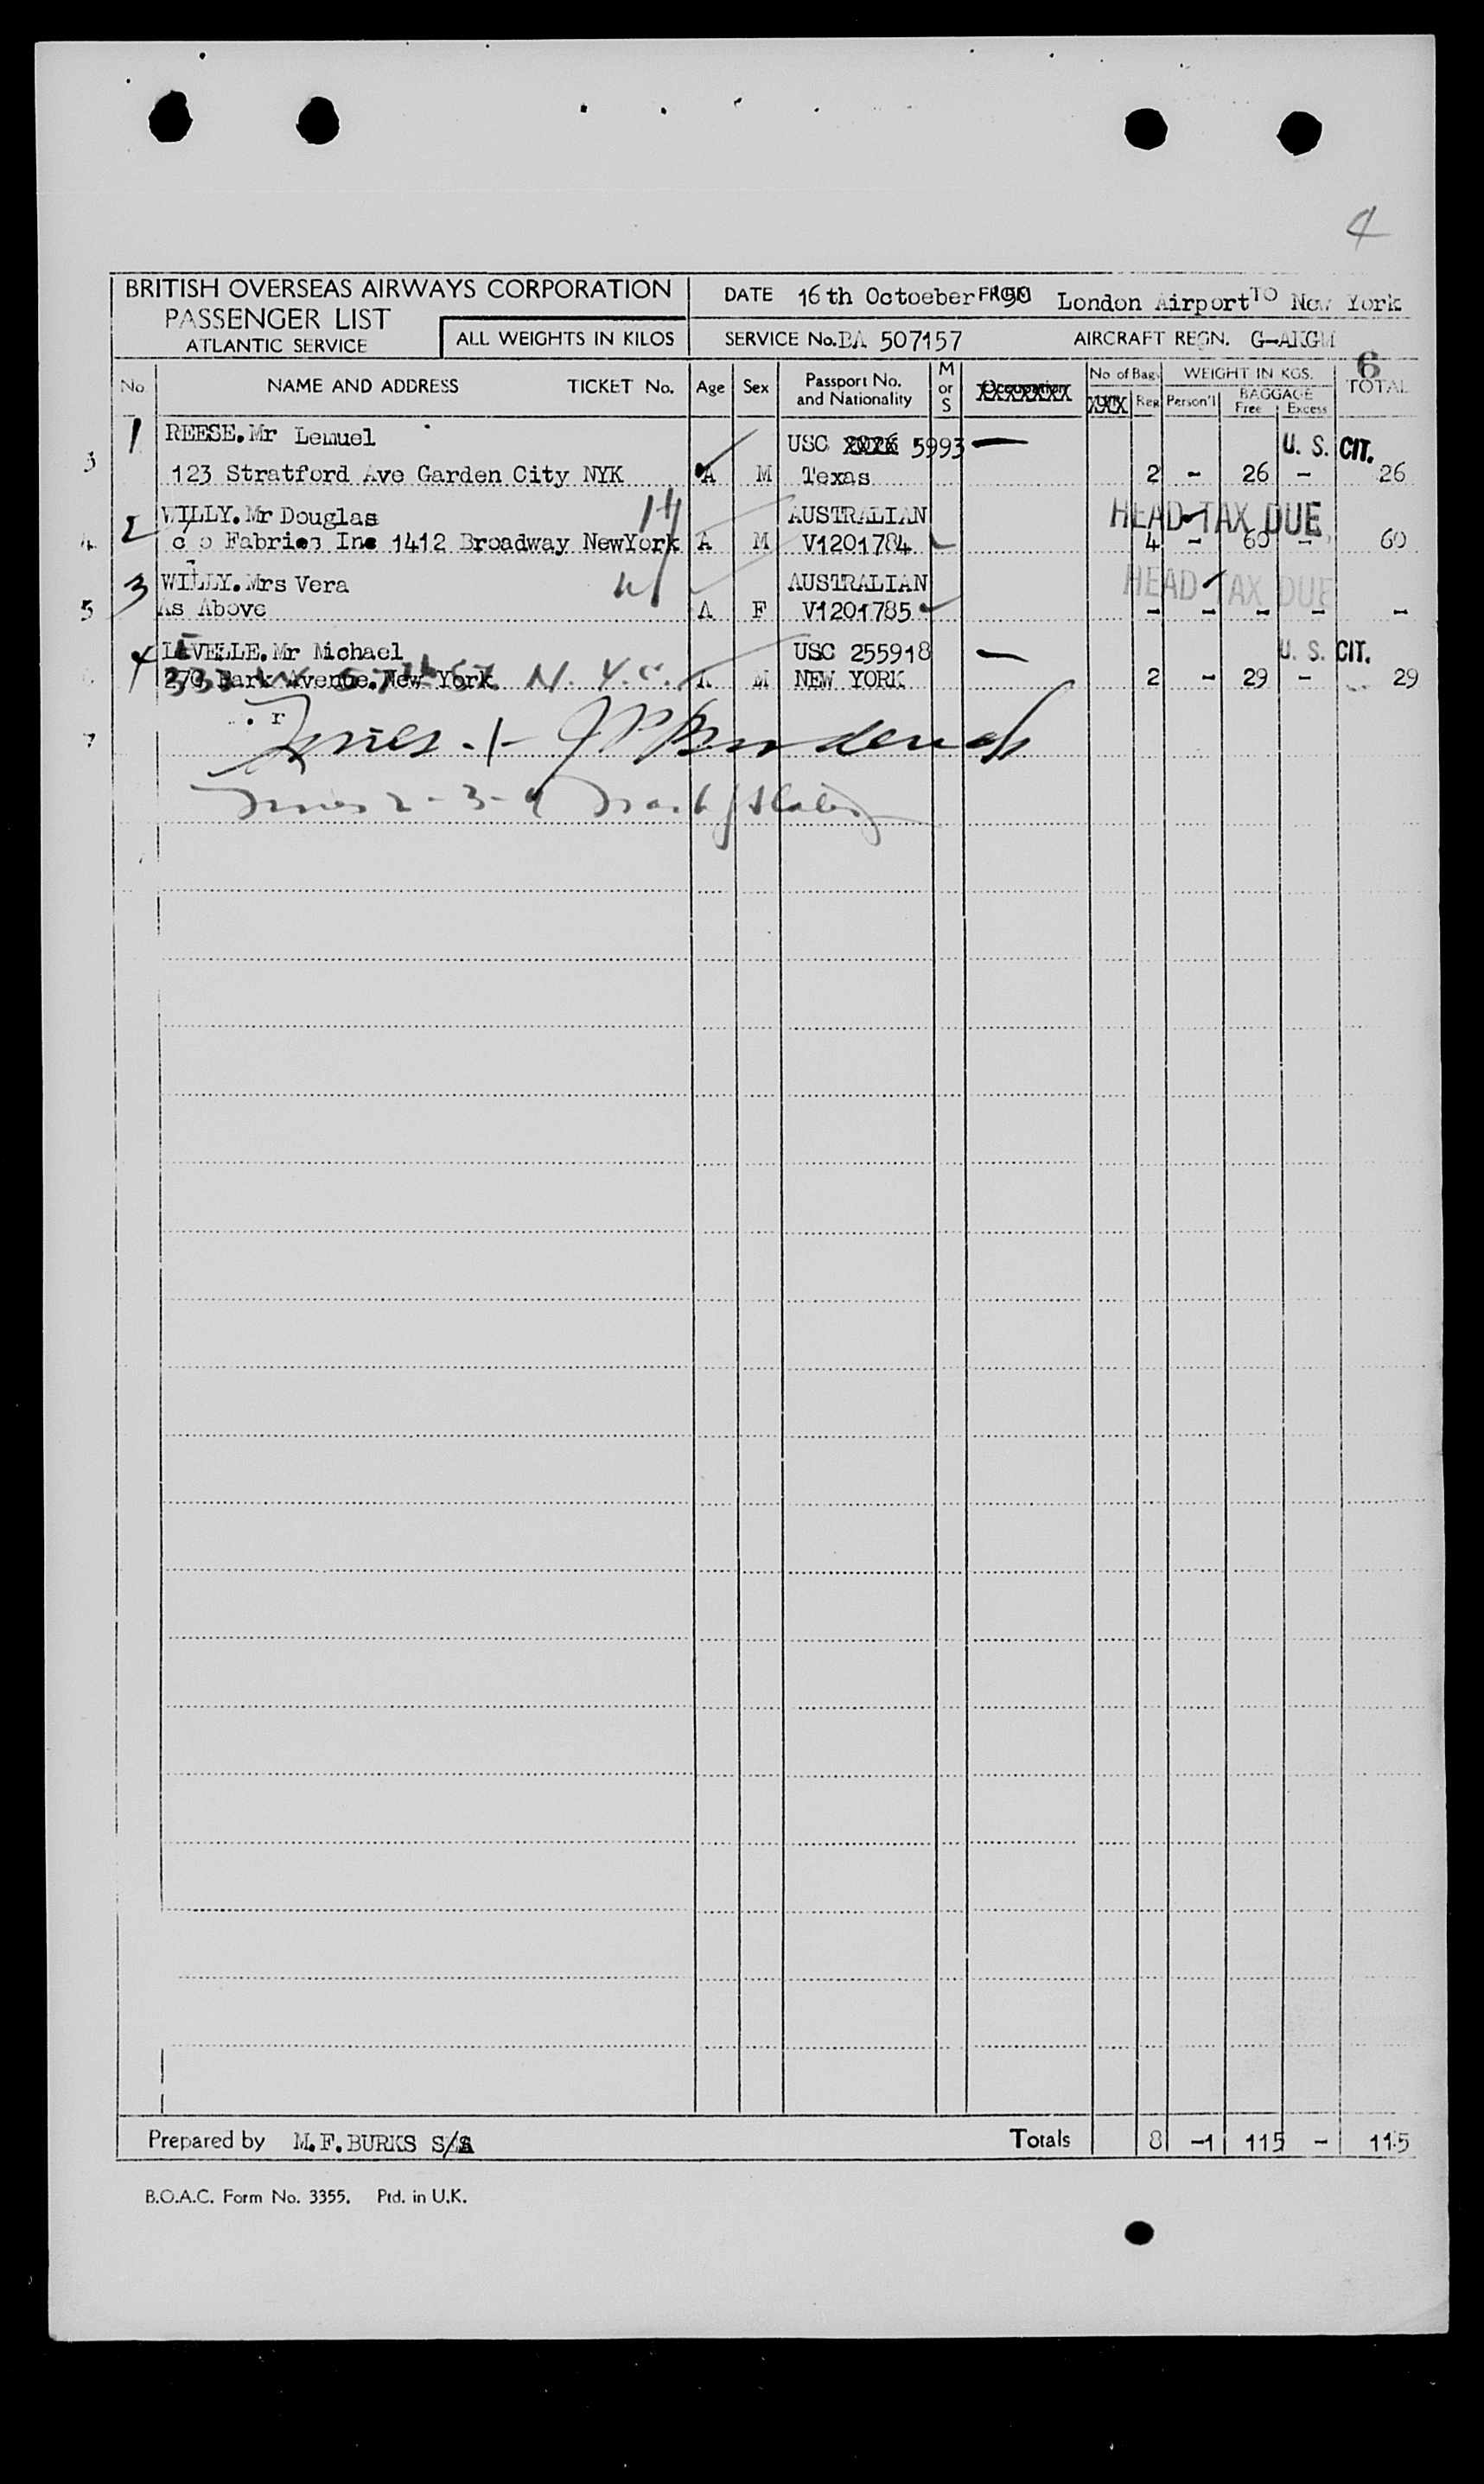 4
BRITISH OVERSEAS AIRWAYS CORPORATION
PASSENGER LIST
ATLANTIC SERVICE
ALL WEIGHTS IN KILOS
DATE 16th Octoeber FROM London Airport TO New York
SERVICE No. BA 507157 AIRCRAFT REGN. G-AKGM
6
No. NAME AND ADDRESS TICKET No. Age Sex Passport No. and Nationality M or S No of Bags Reg WEIGHT IN KGS. Person'l BAGGAGE Free Excess TOTAL
1 REESE.Mr Lemuel USC 5993 — U. S. CIT.
3 123 Stratford Ave Garden City NYK A M Texas 2 - 26 - 26
2 WILLY.Mr Douglas AUSTRALIAN HEAD TAX DUE
4 c/o Fabrics Inc 1412 Broadway NewYork A M V1201784 4 - 60 - 60
3 WILLY.Mrs Vera AUSTRALIAN HEAD TAX DUE
5 As Above A F V1201785 - - - - -
4 LAVELLE.Mr Michael USC 255918 — U. S. CIT.
270 Park Avenue.New York N.Y.C. A M NEW YORK 2 - 29 - 29
7
Lines 2-3-4
Prepared by M.F.BURKS Totals 8 -1 115 - 115
B.O.A.C. Form No. 3355. Ptd. in U.K.